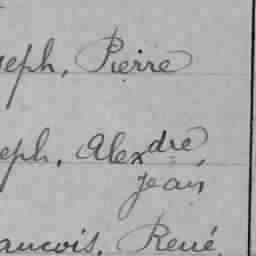 seph, Pierre
eph, Alexdre,
Jean
ancois, René,